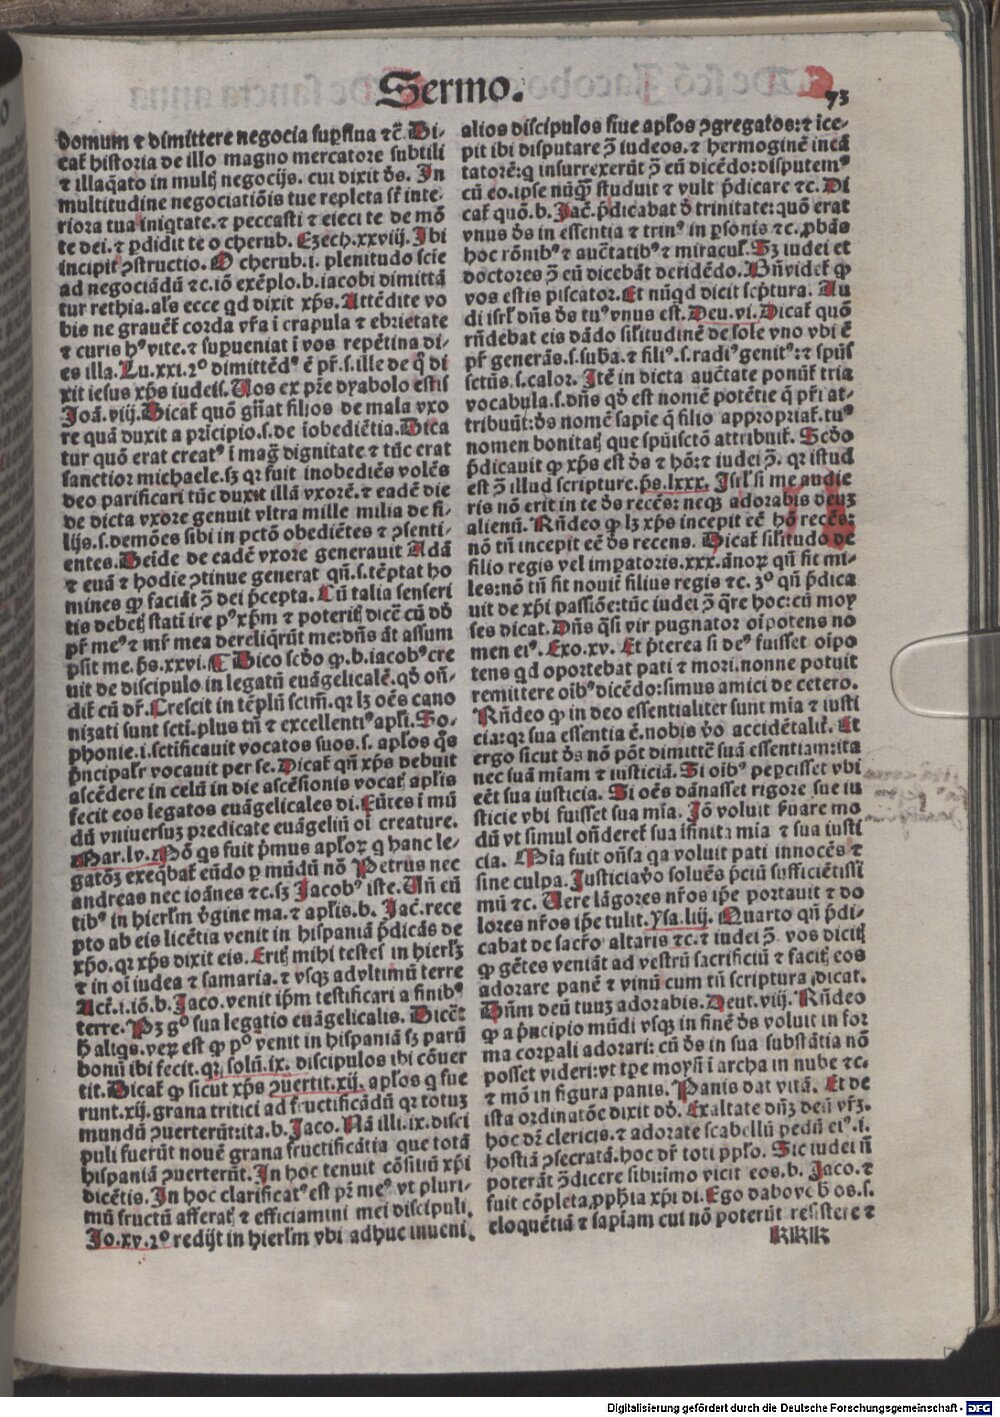 Sermo.
73
domum ⁊ dimittere negocia supflua ⁊c̄. Di-
cat̄ historia de illo magno mercatore subtili
⁊ illaq̄ato in multꝭ negocijs. cui dixit d̄s. In
multitudine negociatiōis tue repleta sūt inte-
riora tua iniqtate. ⁊ peccasti ⁊ eieci te de mō
te dei. ⁊ ꝑdidit te o cherub. Ezech.xxviij. Ibi
incipit ꝯstructio. O cherub.i. plenitudo scie
ad negociādū ⁊c.iō exēplo.b.iacobi dimittā
tur rethia.al's ecce qd dixit xp̄s. Attēdite vo
bis ne grauēt̄ corda vr̄a ī crapula ⁊ ebrietate
⁊ curis hꝰ vite.⁊ supueniat ī vos repētina di-
es illa. Lu.xxi.2º dimittēdꝰ ē pr̄.s.ille de q̄ di
xit iesus xp̄s iudeis. Uos ex pr̄e dyabolo estis
Joā.viij. Dicat̄ quō gn̄at filios de mala vxo
re quā duxit a pricipio.s.de īobediētia. Dica
tur quō erat creatꝰ ī maḡ dignitate ⁊ tūc erat
sanctior michaele.sꝫ qr fuit inobediēs volēs
deo parificari tūc duxit illā vxorē.⁊ eadē die
de dicta vxore genuit vltra mille milia de fi-
lijs.s.demōes sibi in pctō obediētes ⁊ ꝯsenti-
entes. Deīde de eadē vxore generauit Adā
⁊ euā ⁊ hodie ꝯtinue generat qn̄.s.tēptat ho
mines ꝙ faciāt ꝯ̄ dei p̄cepta. Cū talia senseri
tis debetꝭ statī ire pꝰ xp̄m ⁊ poteritꝭ dicē cū dō
pr̄ meꝰ ⁊ mr̄ mea dereliqrūt me:dn̄s āt assum
psit me.p̄s.xxvi.¶ Dico scd̄o ꝙ.b.iacobꝰ cre
uit de discipulo in legatū euāgelicalē.qd̄ on̄-
dit̄ cū dr̄. Crescit in tēplū sctm̄.qr lꝫ oēs cano
nizati sunt scti.plus tn̄ ⁊ excellentiꝰ apl'i. So-
phonie.i.sctificauit vocatos suos.s. aplos q̄s
p̄ncipal'r vocauit per se. Dicat̄ qn̄ xp̄s debuit
ascēdere in celū in die ascēsionis vocatꝭ aplis
fecit eos legatos euāgelicales di. Eūtes ī mū
dū vniuersuꝫ predicate euāgeliū oī creature.
Mar.lv. Mō qs fuit p̄mus aploꝝ q hanc le-
gatōꝫ exeqbat̄ eūdo ꝑ mūdū nō Petrus nec
andreas nec ioānes ⁊c.sꝫ Jacobꝰ iste. Un̄ cū
tibꝰ in hierl'm v̄gine ma.⁊ aplis.b. Jac̄.rece
pto ab eis licētia venit in hispaniā p̄dicās de
xp̄o.qr xp̄s dixit eis. Eritꝭ mihi testes in hierl'ꝫ
⁊ in oī iudea ⁊ samaria.⁊ vsqꝫ ad vltimū terre
Act̄.i.iō.b. Jaco.venit ip̄m testificari a finibꝰ
terre. Pꝫ gº sua legatio euāgelicalis. Dicēt
h̄ aliqs.veꝝ est ꝙ pº venit in hispaniā sꝫ parū
bonū ibi fecit.qr solū.ix. discipulos ibi cōuer
tit. Dicat̄ ꝙ sicut xp̄s ꝯuertit.xij. aplos q fue
runt.xij.grana tritici ad fructificādū qr totuꝫ
mundū ꝯuerterūt:ita.b. Jaco. Nā illi.ix.disci
puli fuerūt nouē grana fructificātia que totā
hispaniā ꝯuerterūt. In hoc tenuit cōsiliū xp̄i
dicētis. In hoc clarificatꝰ est pr̄ meꝰ vt pluri-
mū fructū afferatꝭ ⁊ efficiamini mei discipuli.
Jo.xv.2º redijt in hierl'm vbi adhuc inueni.
alios discipulos siue ap̄los ꝯgregatos:⁊ īce-
pit ibi disputare ꝯ̄ iudeos.⁊ hermoginē incā
tatorē:q insurrexerūt ꝯ̄ eū dicēdo:disputemꝰ
cū eo.ipse nūq̄ studuit ⁊ vult p̄dicare ⁊c. Di
cat̄ quō.b. Jac̄.p̄dicabat d̄ trinitate:quō erat
vnus d̄s in essentia ⁊ trinꝰ in ꝑsonis ⁊c.ꝓbās
hoc rōnibꝰ ⁊ auc̄tatibꝰ ⁊ miracul'. Sꝫ iudei et
doctores ꝯ̄ eū dicebāt deridēdo. Bn̄ videt̄ ꝙ
vos estis piscator. Et nūqd dicit scp̄tura. Au
di isrl' dn̄s d̄s tuꝰ vnus est. Deu.vi. Dicat̄ quō
rn̄debat eis dādo sil'itudinē de sole vno vbi ē
pr̄ generās.s.sub̄a.⁊ filiꝰ.s.radiꝰ genitꝰ:⁊ spūs
sctūs.s.calor. Itē in dicta auc̄tate ponūt̄ tria
vocabula.s.dn̄s qd̄ est nomē potētie q̄ pr̄i at-
tribuūt:d̄s nomē sapiē q̄ filio appropriat̄.tuꝰ
nomen bonitatꝭ que spūisctō attribuit̄. Scd̄o
p̄dicauit ꝙ xp̄s est d̄s ⁊ hō:⁊ iudei ꝯ̄. qr istud
est ꝯ̄ illud scripture.p̄s.lxxx. Isrl' si me audie
ris nō erit in te d̄s recēs: neqꝫ adorabis deuꝫ
alienū. Rn̄deo ꝙ lꝫ xp̄s incepit eē hō recēs:
nō tn̄ incepit eē d̄s recens. Dicat̄ sil'itudo de
filio regis vel impatoris.xxx.ānoꝝ qn̄ fit mi-
les:nō tn̄ fit nouit̄ filius regis ⁊c. 3º qn̄ p̄dica
uit de xp̄i passiōe:tūc iudei ꝯ̄ q̄re hoc:cū moy
ses dicat. Dn̄s q̄si vir pugnator oīpotens no
men eiꝰ. Exo.xv. Et p̄terea si deꝰ fuisset oīpo
tens qd oportebat pati ⁊ mori.nonne potuit
remittere oībꝰ dicēdo:simus amici de cetero.
Rn̄deo ꝙ in deo essentialiter sunt mīa ⁊ iusti
cia:qr sua essentia ē.nobis v̄o accidētalit̄. Et
ergo sicut d̄s nō pōt dimittē suā essentiam:ita
nec suā mīam ⁊ iusticiā. Si oībꝰ pepcisset vbi
eēt sua iusticia. Si oēs dānasset rigore sue iu
sticie vbi fuisset sua mīa. Jō voluit p̄uare mo
dū vt simul on̄deret̄ sua īfinita mīa ⁊ sua iusti
cia. Mīa fuit on̄sa qa voluit pati innocēs ⁊
sine culpa. Justicia v̄o soluēs p̄ciū sufficiētissi
mū ⁊c. Uere lāgores nr̄os ip̄e portauit ⁊ do
lores nr̄os ip̄e tulit.ysa.liij. Quarto qn̄ p̄di-
cabat de sacr̄o altaris ⁊c.⁊ iudei ꝯ̄ vos dicitꝭ
ꝙ gētes veniāt ad vestrū sacrificiū ⁊ facitꝭ eos
adorare panē ⁊ vinū cum tn̄ scriptura dicat.
Dn̄m deū tuuꝫ adorabis. Deut.viij. Rn̄deo
ꝙ a p̄ncipio mūdi vsqꝫ in finē d̄s voluit in for
ma corpali adorari: cū d̄s in sua substātia nō
posset videri:vt tpe moysi ī archa in nube ⁊c-
⁊ mō in figura panis. Panis dat vitā. Et de
ista ordinatōe dixit dō. Exaltate dn̄ꝫ deū vr̄ꝫ.
hoc dr̄ clericis.⁊ adorate scabellū pedū eiꝰ.s.
hostiā ꝯsecratā.hoc dr̄ toti ppl'o. Sic iudei n̄
poterāt ꝯ̄dicere sibi:imo vicit eos.b. Jaco.⁊
fuit cōpleta ꝓph̄ia xp̄i di. Ego dabo vobis os.s.
eloquētiā ⁊ sapīam cui nō poterūt resistere ⁊
kkk
Digitalisierung gefördert durch die Deutsche Forschungsgemeinschaft - DFG